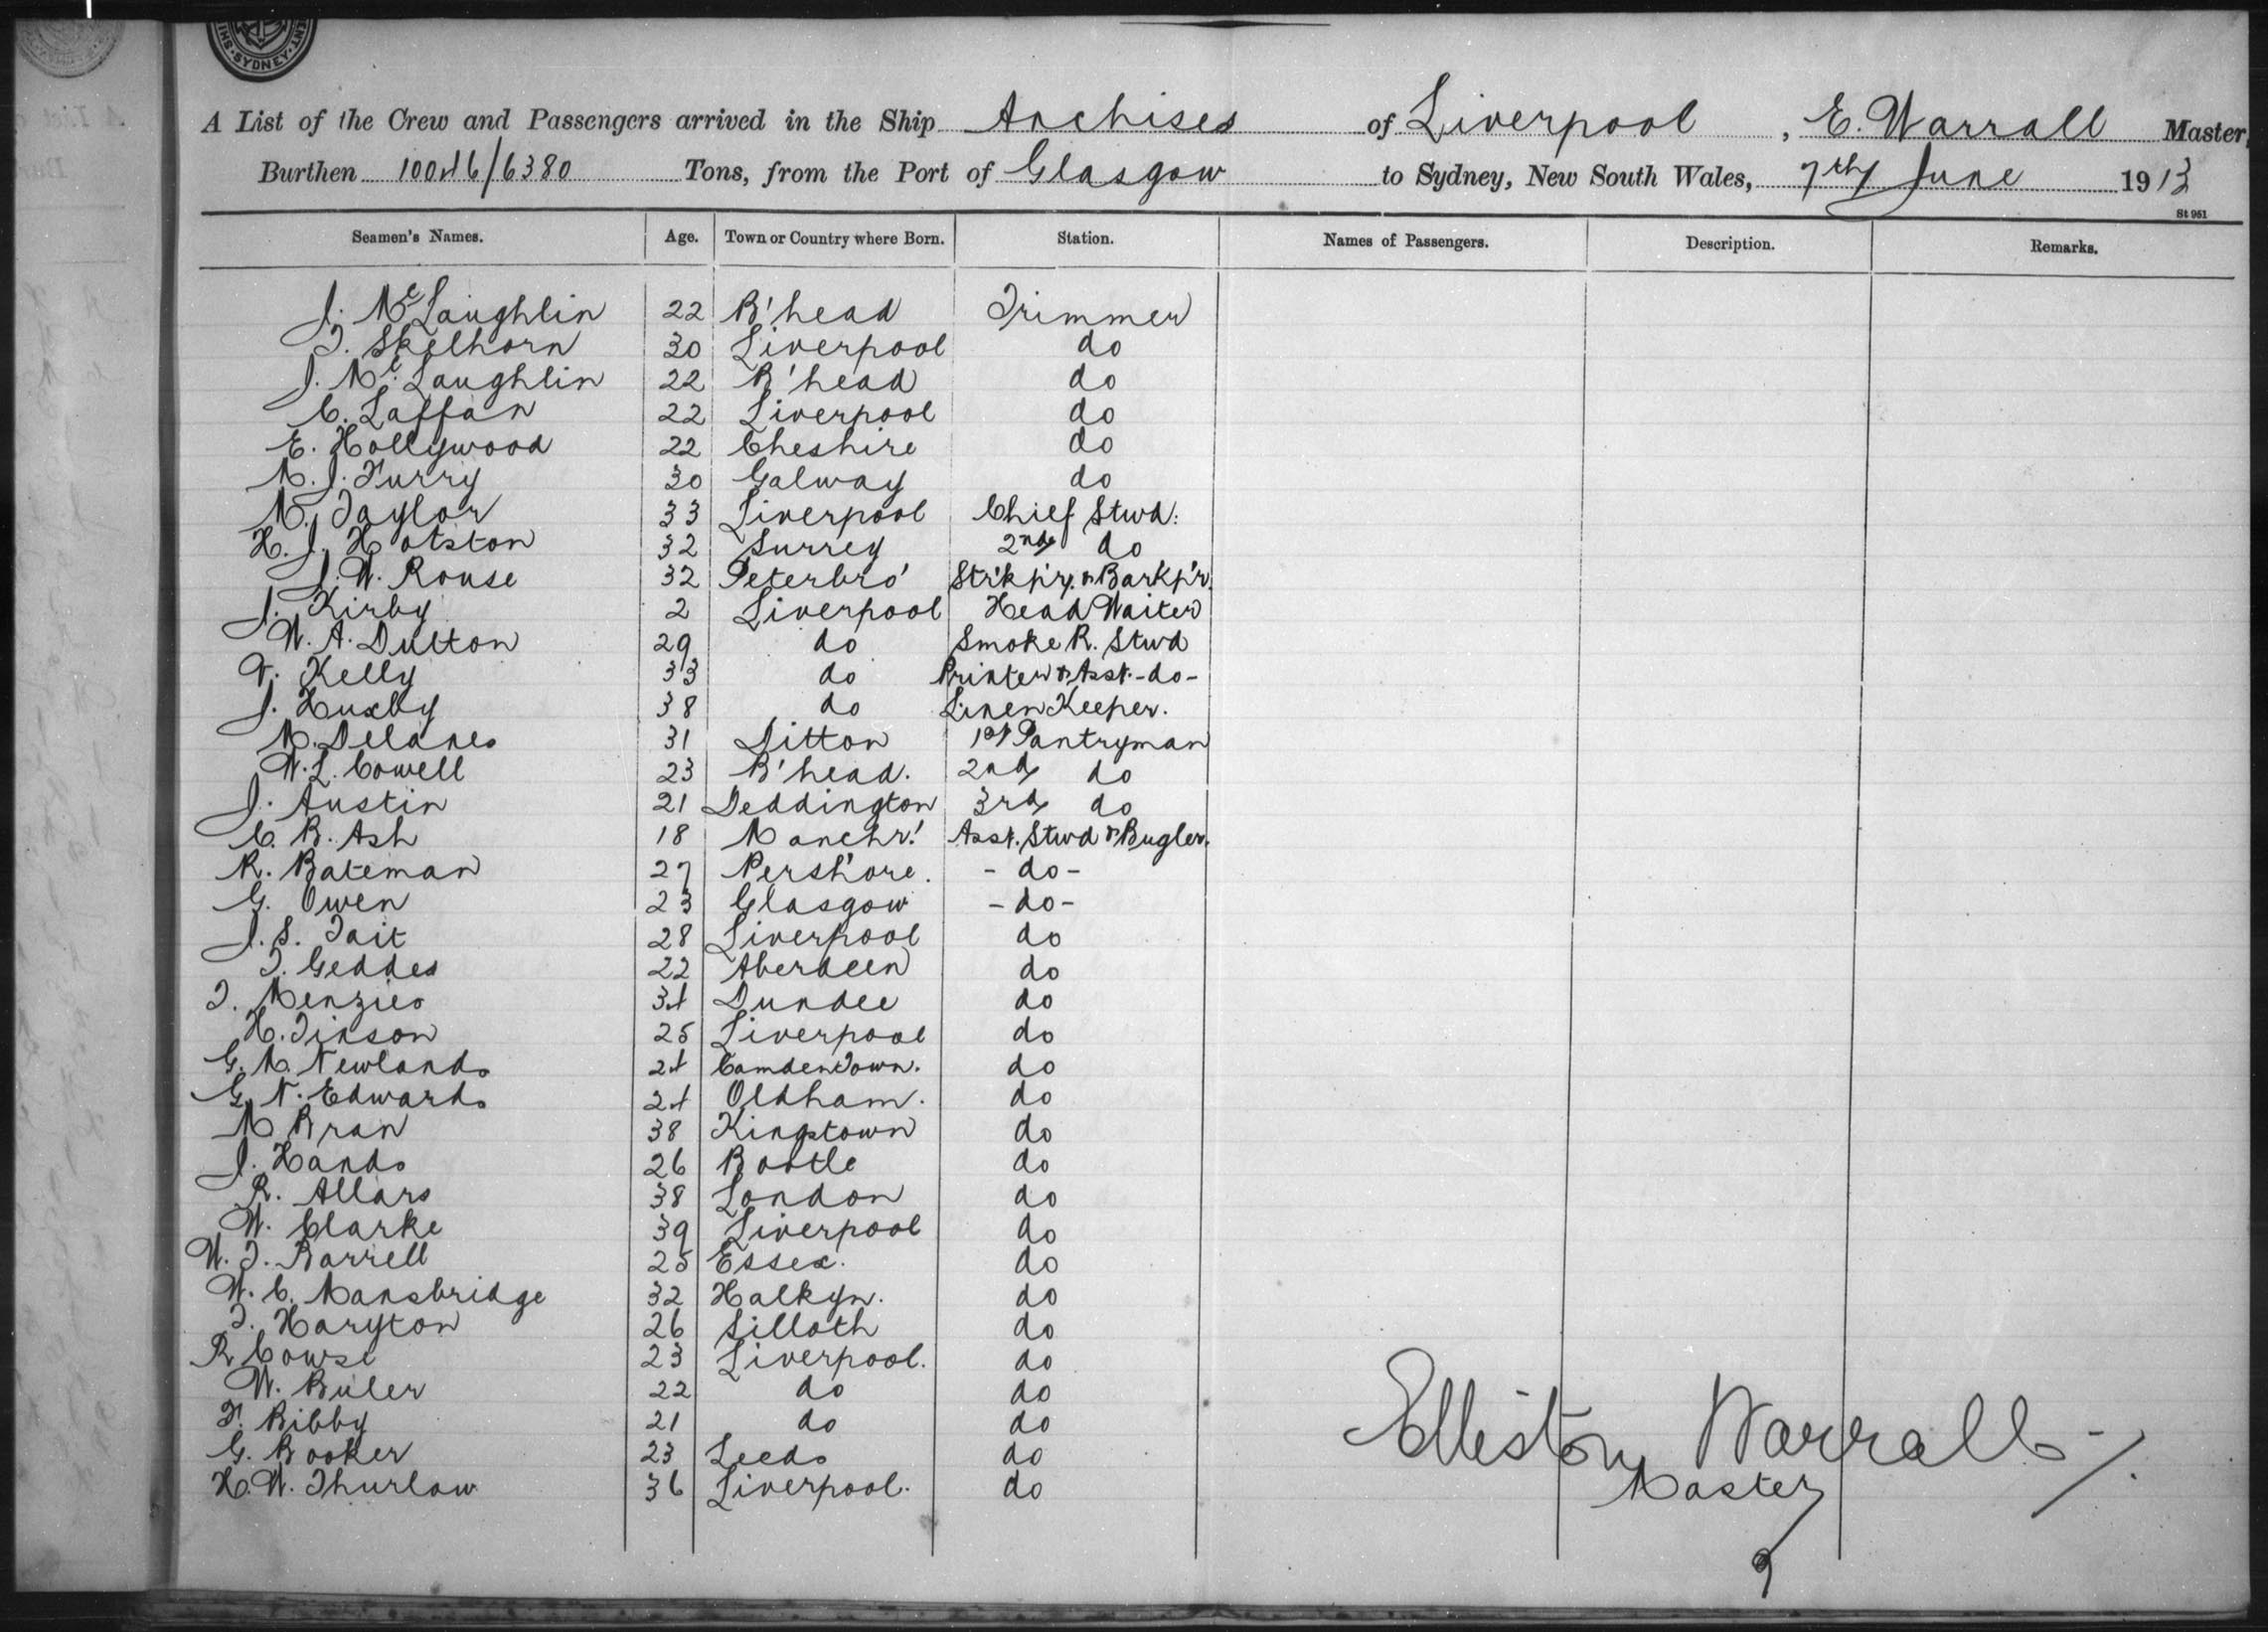 SYDNEY
A List of the Crew and Passengers arrived in the Ship Anchises of Liverpool, E. Warrall Master,
Burthen 10046/6380 Tons, from the Port of Glasgow to Sydney, New South Wales, 7th June 1913
St 951
Seamen's Names. Age. Town or Country where Born. Station. Names of Passengers. Description. Remarks.
J. McLaughlin 22 B'head Trimmer
T. Skelhorn 30 Liverpool do
J. McLaughlin 22 B'head do
C. Laffan 22 Liverpool do
E. Hollywood 22 Cheshire do
M. J. Furry 30 Galway do
M. Taylor 33 Liverpool Chief Stwd:
H. J. Hotston 32 Surrey 2nd do
J. W. Rouse 32 Peterbro' Str'kp'r. & Barkp'r.
J. Kirby 2 Liverpool Head Waiter
W. A. Dutton 29 do Smoke R. Stwd
V. Kelly 33 do Printer & Asst. -do-
J. Huxby 38 do Linen Keeper.
M. Delanes 31 Ditton 1st Pantryman
W. L. Cowell 23 B'head. 2nd do
J. Austin 21 Deddington 3rd do
C. B. Ash 18 Manchr! Asst. Stwd & Bugler.
R. Bateman 27 Pershore. - do -
G. Owen 23 Glasgow - do -
J. S. Tait 28 Liverpool do
T. Geddes 22 Aberdeen do
T. Menzies 34 Dundee do
H. Tinson 25 Liverpool do
G. M. Newlands 24 Camden Town. do
G. N. Edwards 24 Oldham. do
M. Bran 38 Kingstown do
J. Hands 26 Bootle do
R. Allars 38 London do
W. Clarke 39 Liverpool do
W. T. Barrell 25 Essex. do
W. C. Mansbridge 32 Halkyn. do
T. Haryton 26 Silloth do
R. Cowse 23 Liverpool. do
W. Buler 22 do do
F. Bibby 21 do do
G. Booker 23 Leeds do
H. W. Thurlow 36 Liverpool. do
Elliston Warrall
Master
9